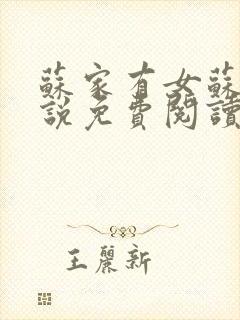 蘇家有女蘇
說免費閱讀
王麗新